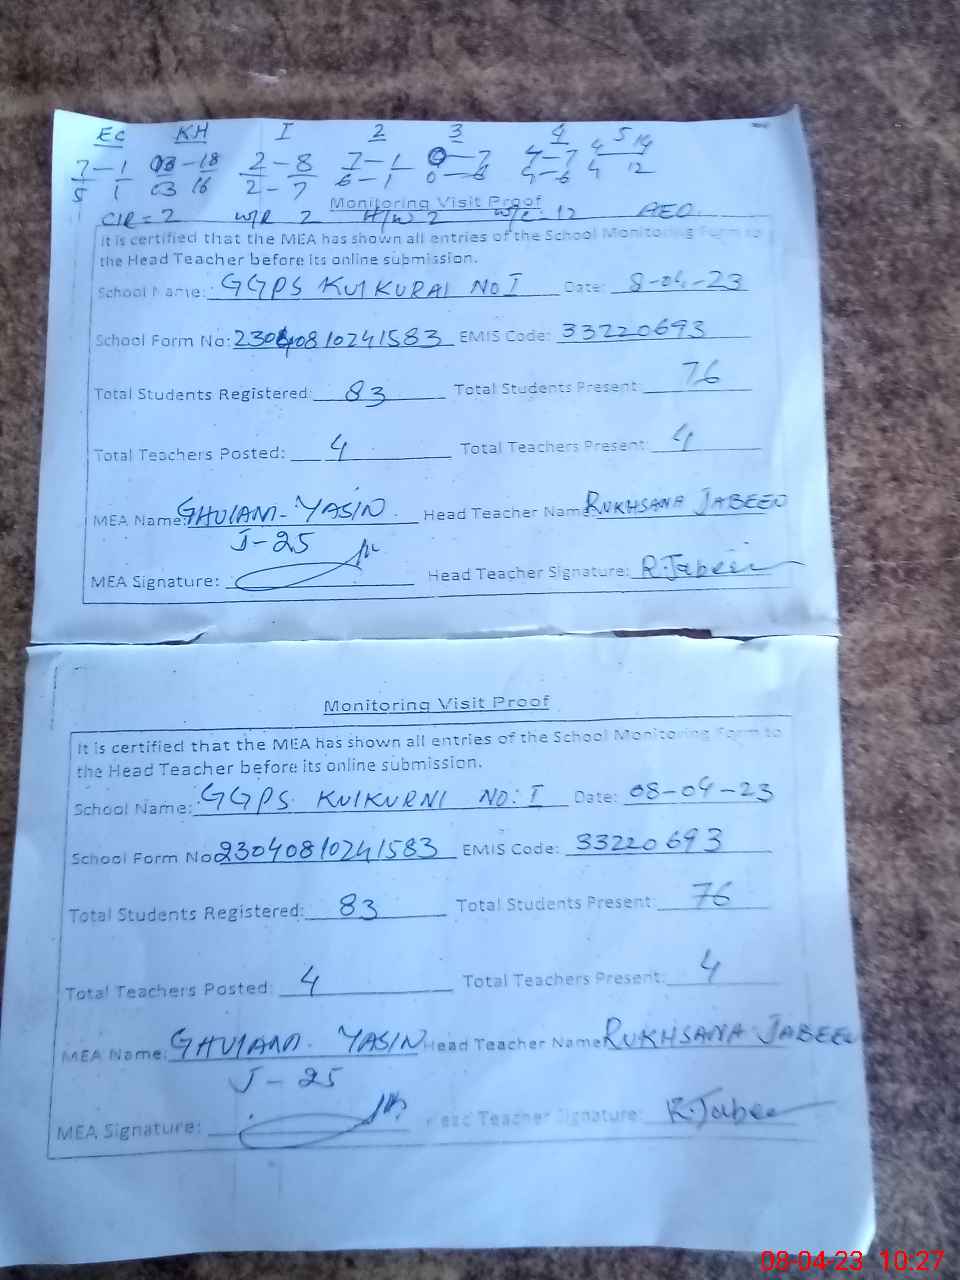 EC KH I 2 3 4 5
7-1 03-18 2-8 7-1 0-7 4-7 4 14
5 1 03 16 2-7 6-1 0-6 4-6 4 12
Monitoring Visit Proof
C/R=2 W/R 2 H/W 2 12 AEO
It is certified that the MEA has shown all entries of the School Monitoring Form to
the Head Teacher before its online submission.
School Name: GGPS KULKURAI NO I Date: 8-04-23
School Form No: 23040810241583 EMIS Code: 33220693
Total Students Registered: 83 Total Students Present: 76
Total Teachers Posted: 4 Total Teachers Present: 4
MEA Name: GHULAM-YASIN. Head Teacher Name: RUKHSANA JABEEN
J-25
MEA Signature: Head Teacher Signature: R.Jabeen
Monitoring Visit Proof
It is certified that the MEA has shown all entries of the School Monitoring Form to
the Head Teacher before its online submission.
School Name: GGPS KULKURNI NO: I Date: 08-04-23
School Form No 23040810241583 EMIS Code: 33220693
Total Students Registered: 83 Total Students Present: 76
Total Teachers Posted: 4 Total Teachers Present: 4
MEA Name: GHULAM. YASIN Head Teacher Name RUKHSANA JABEEN
J-25
MEA Signature: Head Teacher Signature: R.Jabee
08-04-23 10:27